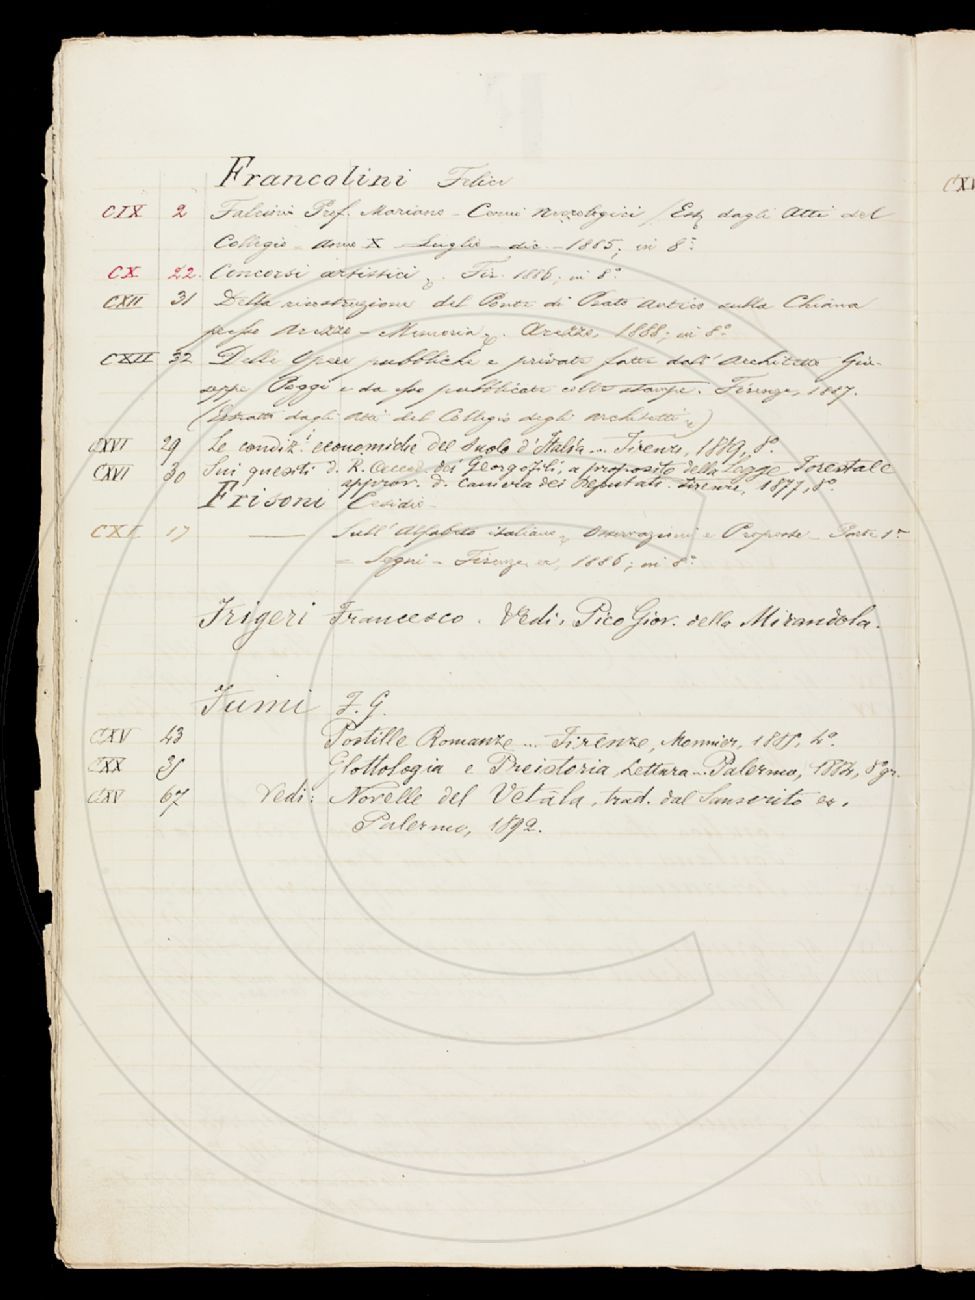 Francolini Felice
CIX 2 Falcini Prof. Mariano - Cenni Necrologici / Est. dagli Atti del
Collegio - Anno X - Luglio - dic. - 1885; in 8º
CX 22. Concorsi artistici Fir. 1886; in 8º
CXII 31 Della ricostruzione del Ponte di Prato Antico sulla Chiana
presso Arezzo - Memoria Arezzo, 1888; in 8º
CXIII 32 Delle Opere pubbliche e private fatte dall' Architetto Giu-
seppe Poggi e da esso pubblicate colle stampe. Firenze, 1887.
(Estratto dagli Atti del Collegio degli Architetti)
CXVI 29 Le condiz.i economiche del suolo d'Italia... Firenze, 1869, 8º.
CXVI 30 Sui quesiti d. R. Accad. dei Georgofili, a proposito della Legge Forestale
approv. d. Camera dei Deputati. Firenze, 1877, 8º.
Frisoni Cesidio
CXI 17 — Sull' Alfabeto italiano, Osservazioni e Proposte - Parte 1ª
= Segni - Firenze, 1886; in 8º
Frigeri Francesco. Vedi, Pico Giov. della Mirandola.
Fumi F. G.
CXV 43 Postille Romanze ... Firenze, Monnier, 4º.
CXX Glottologia e Preistoria, Lettura... Palermo, 8º gr.
CXV 67 Vedi: Novelle del Vetâla, trad. dal Sanscrito ec.
Palermo, 1892.
CXI